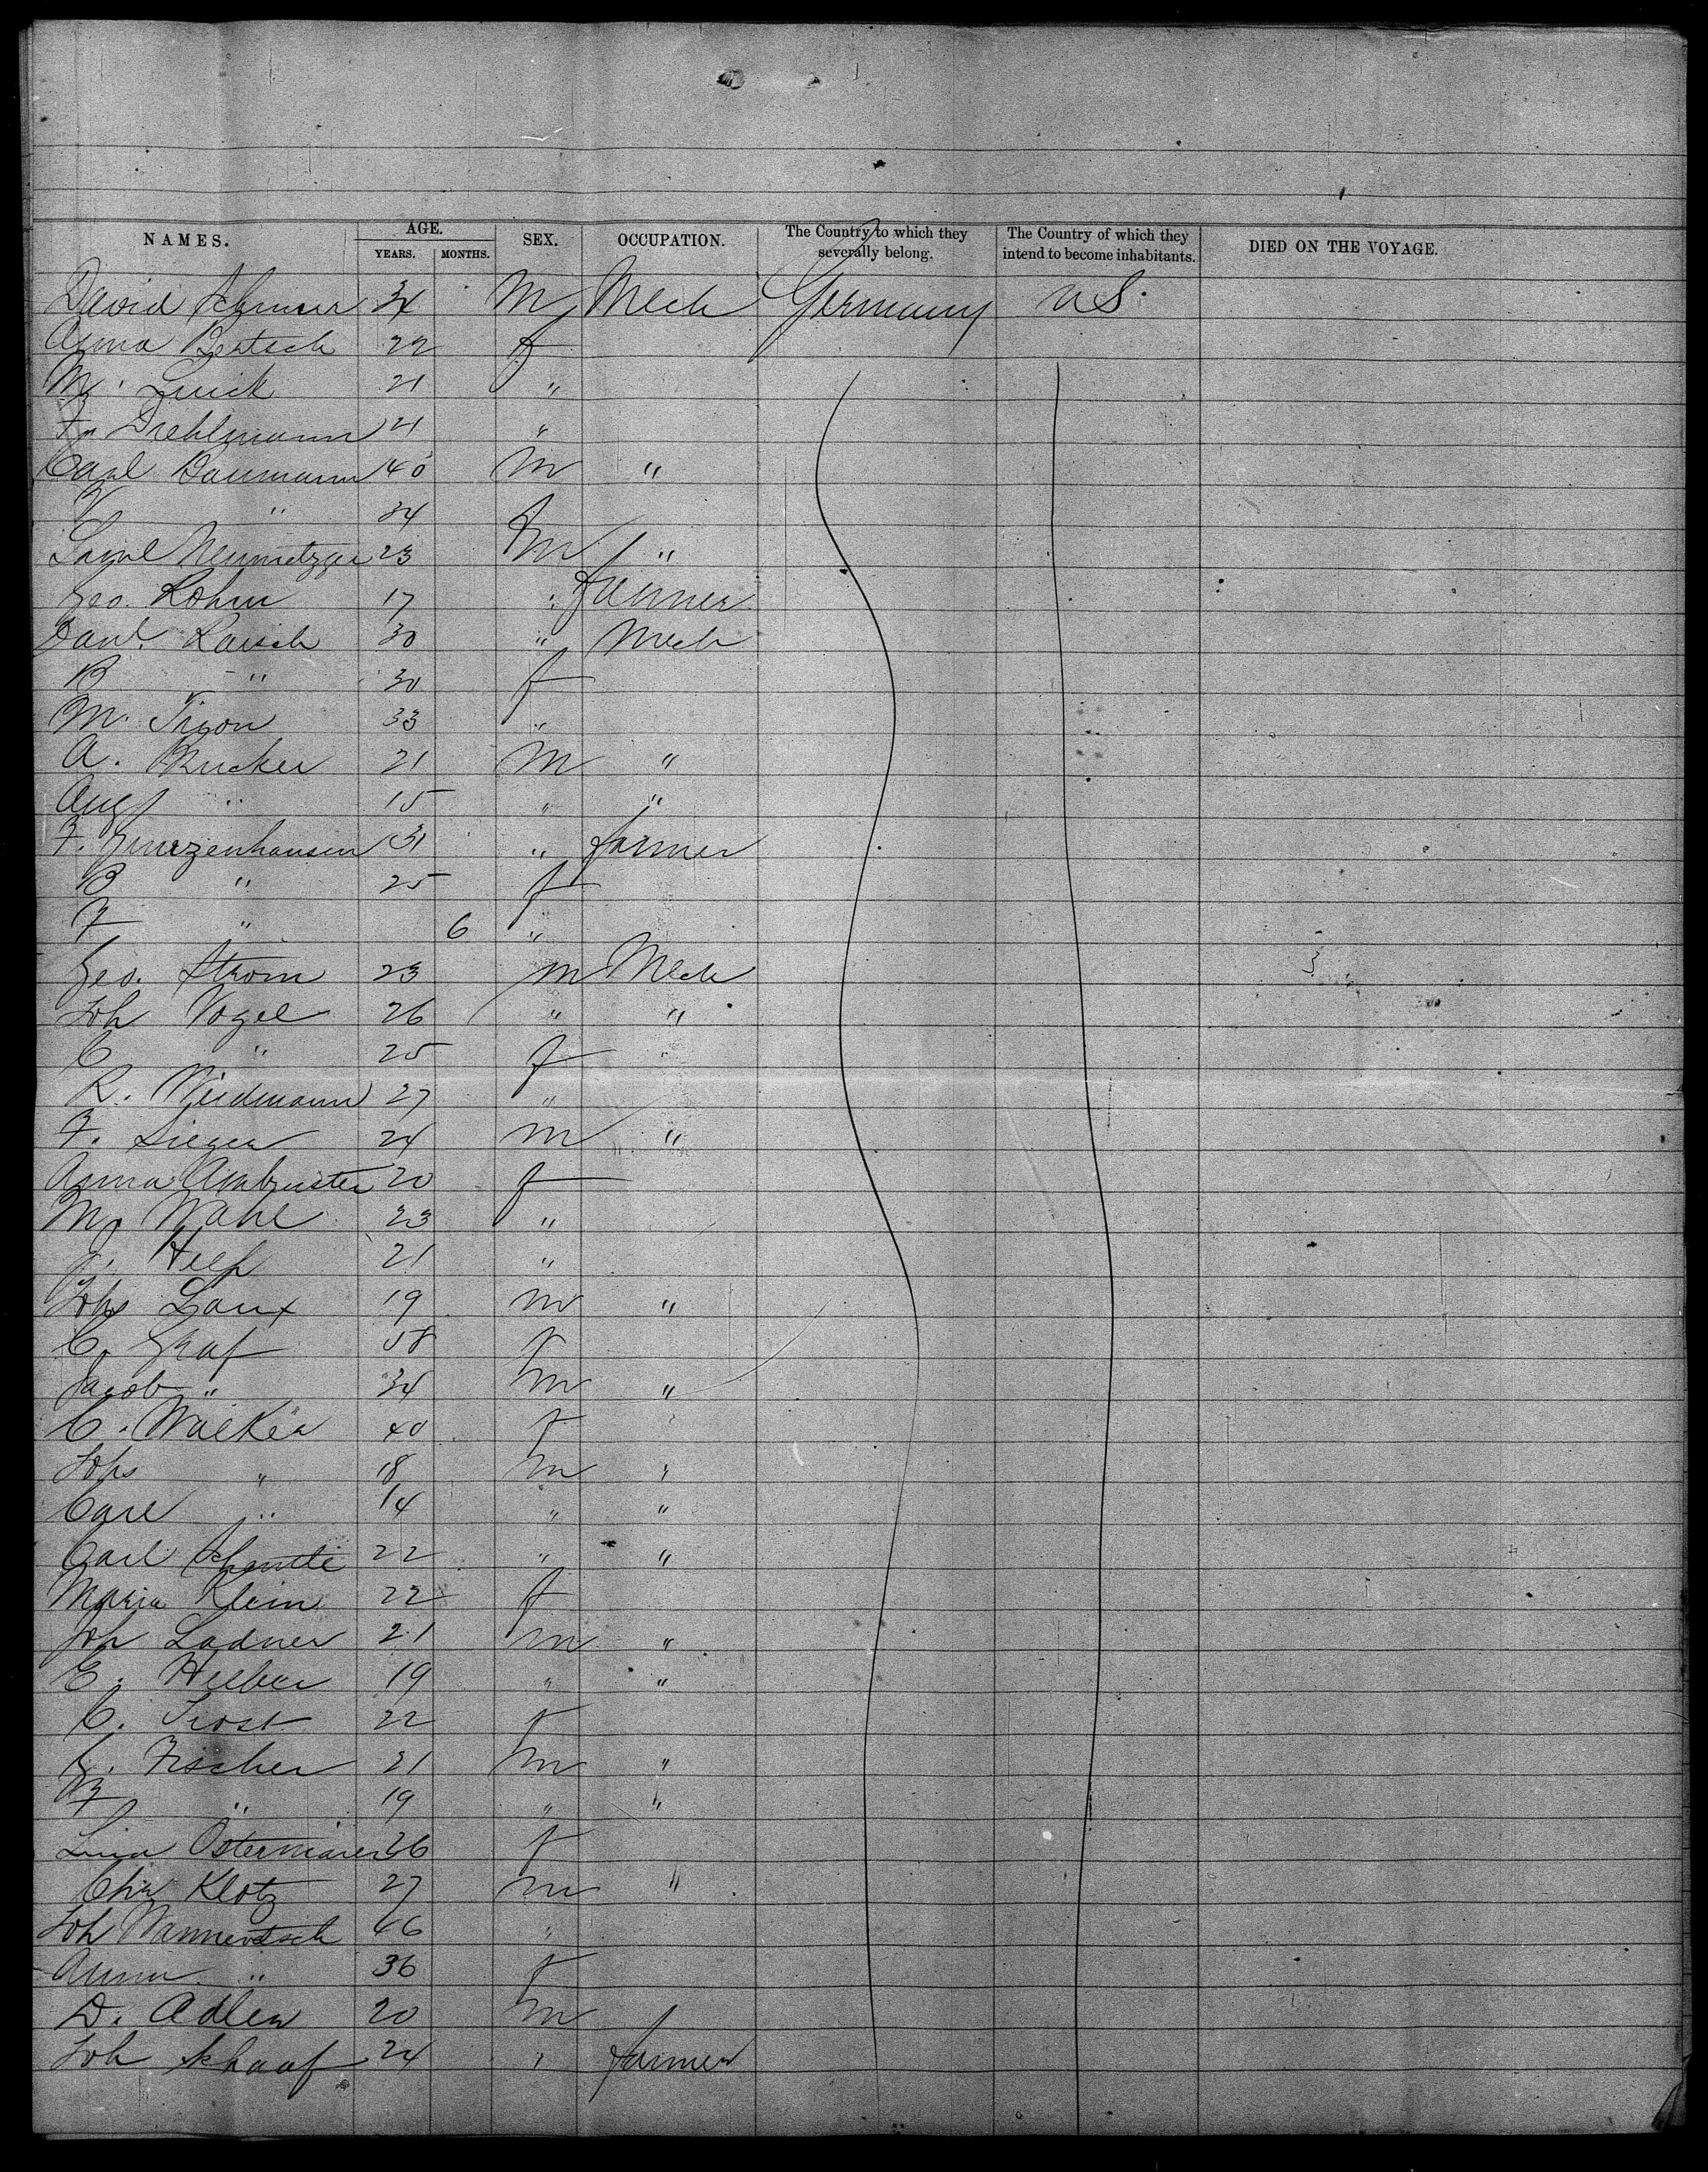 NAMES. AGE. SEX. OCCUPATION. The Country to which they severally belong. The Country of which they intend to become inhabitants. DIED ON THE VOYAGE.
YEARS. MONTHS.
David 34 M Mech Germany U S.
Anna Bertsch 22 f
M. Luick 21 "
F. Diehlmann 21 "
Carl Baumann 40 m "
" 34 f
Saml Neumetzger 23 m "
Geo. Rohm 17 " farmer
Danl. Raisch 30 " Mech
B " 30 f
M. Tryon 33 "
A. Rucker 21 M "
Aug " 15 " "
F. Gunzenhausen 31 " farmer
B " 25 f
F " 6 "
Geo. Strom 23 m Mech
Joh Vogel 26 " "
C " 25 f
R. Weidmann 27 "
F. Sieger 24 m "
Anna Ambruster 20 f
M. Wahl 23 "
J. 21 "
Johs Laux 19 m "
C. Graf 58 f
Jacob " 34 m "
C. Walker 40 f
Johs " 18 m "
Carl " 14 " "
Carl 22 " "
Maria Klein 22 f
Joh Ladner 21 m "
E. Hieber 19 " "
C. Trost 22 f
G. Fischer 21 m "
F " 19 " "
Lina Ostermaier 26 f
Chr Klotz 27 m "
Joh 46 "
Anna " 36 f
D. Adler 20 m
Joh Schaaf 24 " farmer